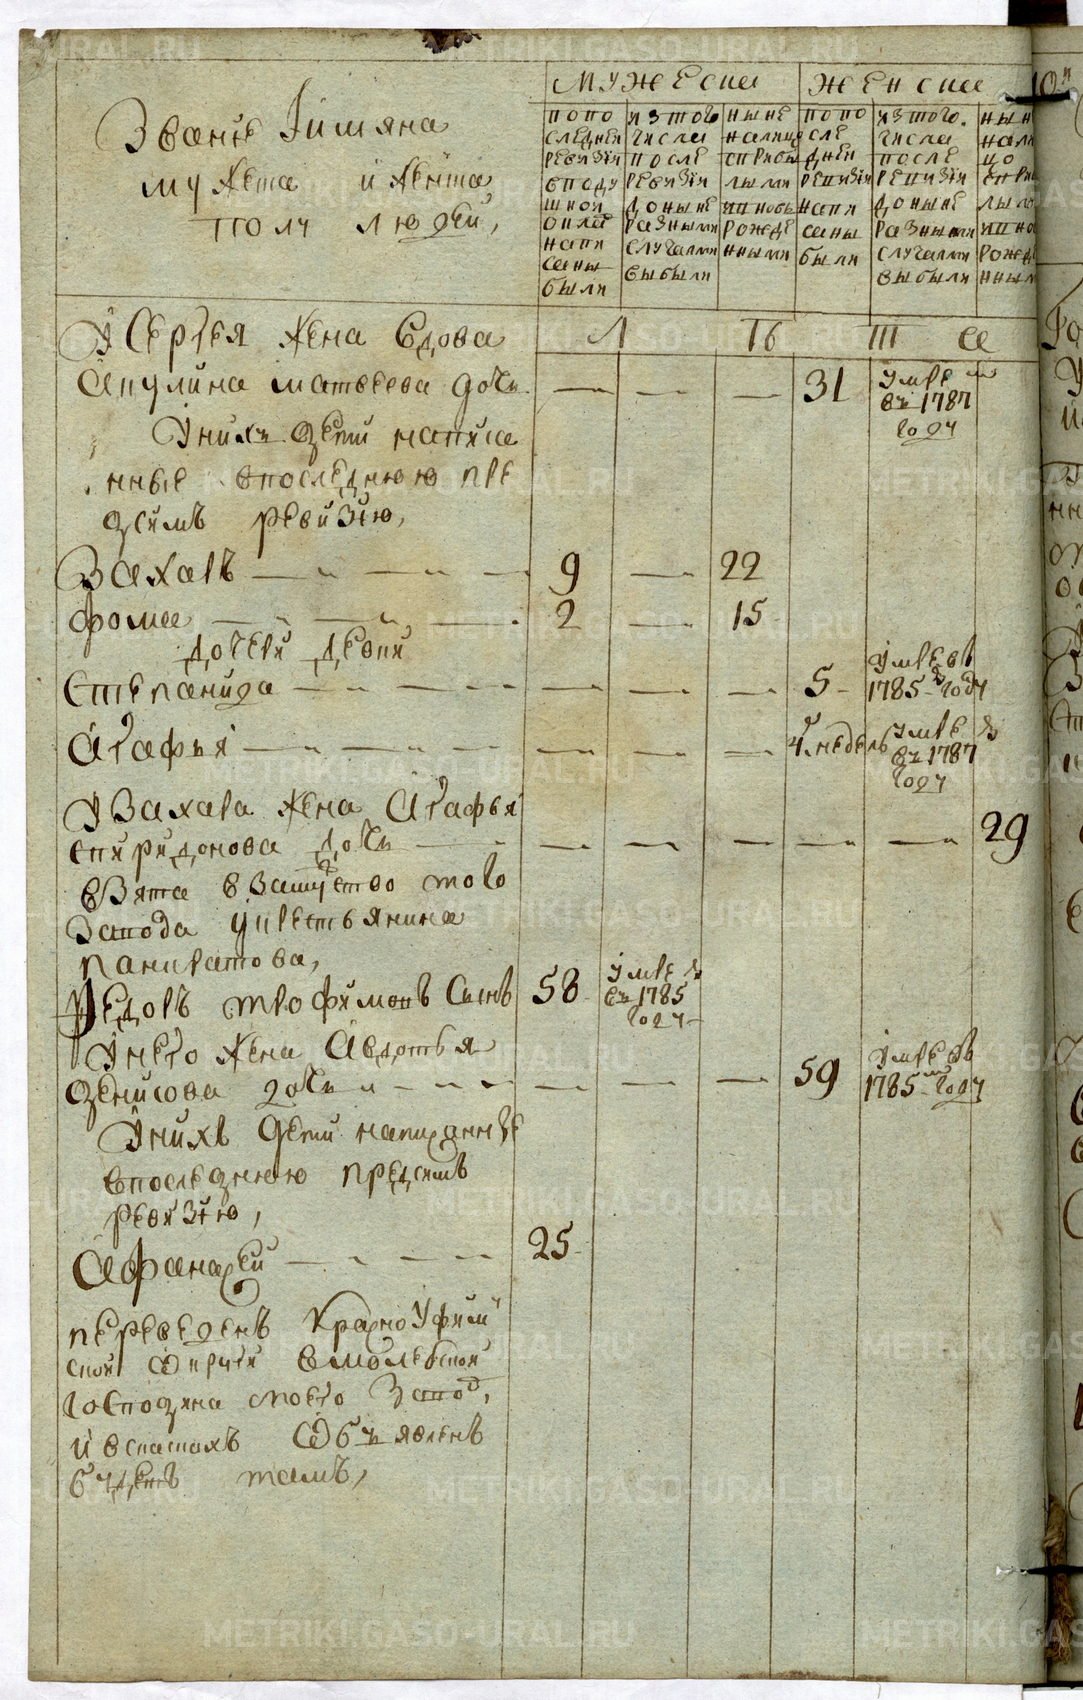 МУЖЕСКА
ЖЕНСКА
Званiе Iимяна
мужеска и женска
полу людей,
попо
следней
ревизiи
вподу
шной
окла
напи
саны
были
изтого
числа
после
ревизiи
доныне
разными
случаями
выбыли
ныне
налицо
сприбы
лыми
ивновь
рожде
нными
попо
сле
дней
ревизiи
напи
саны
были
изтого
числа
после
ревизiи
доныне
разными
случаями
выбыли
Л Ть Ш
У Сергея жена вдова
Акулина матвеева дочь — — — 31 умре
въ 1787
году
Униxъ дети написа
нные впоследнюю пре
дсимъ ревизiю,
Захаръ — — — 9 — 22
Фома — — — 2 — 15
дочери девки
Степанида — — — — — — 5 умре въ
1785 году
Агафья — — — — — — 4 недель умре
въ 1787
году
У Захара жена Агафья
спиридонова дочь — — — — — — 29
взята взамужство того
завода укрестьянина
панкратова,
Федоръ трофимовъ Сынъ 58 умре
въ 1785
году
Унего жена Авдотья
денисова дочь — — — — 59 умре въ
1785 году
Унихъ дети написанные
впоследнюю предсимъ
ревизiю,
Афанасей — — — 25
переведенъ Красноуфим
ской округи вмолебской
господина моего завод,
и всказкахъ объявленъ
будетъ тамъ,
METRIKI.GASO-URAL.RU